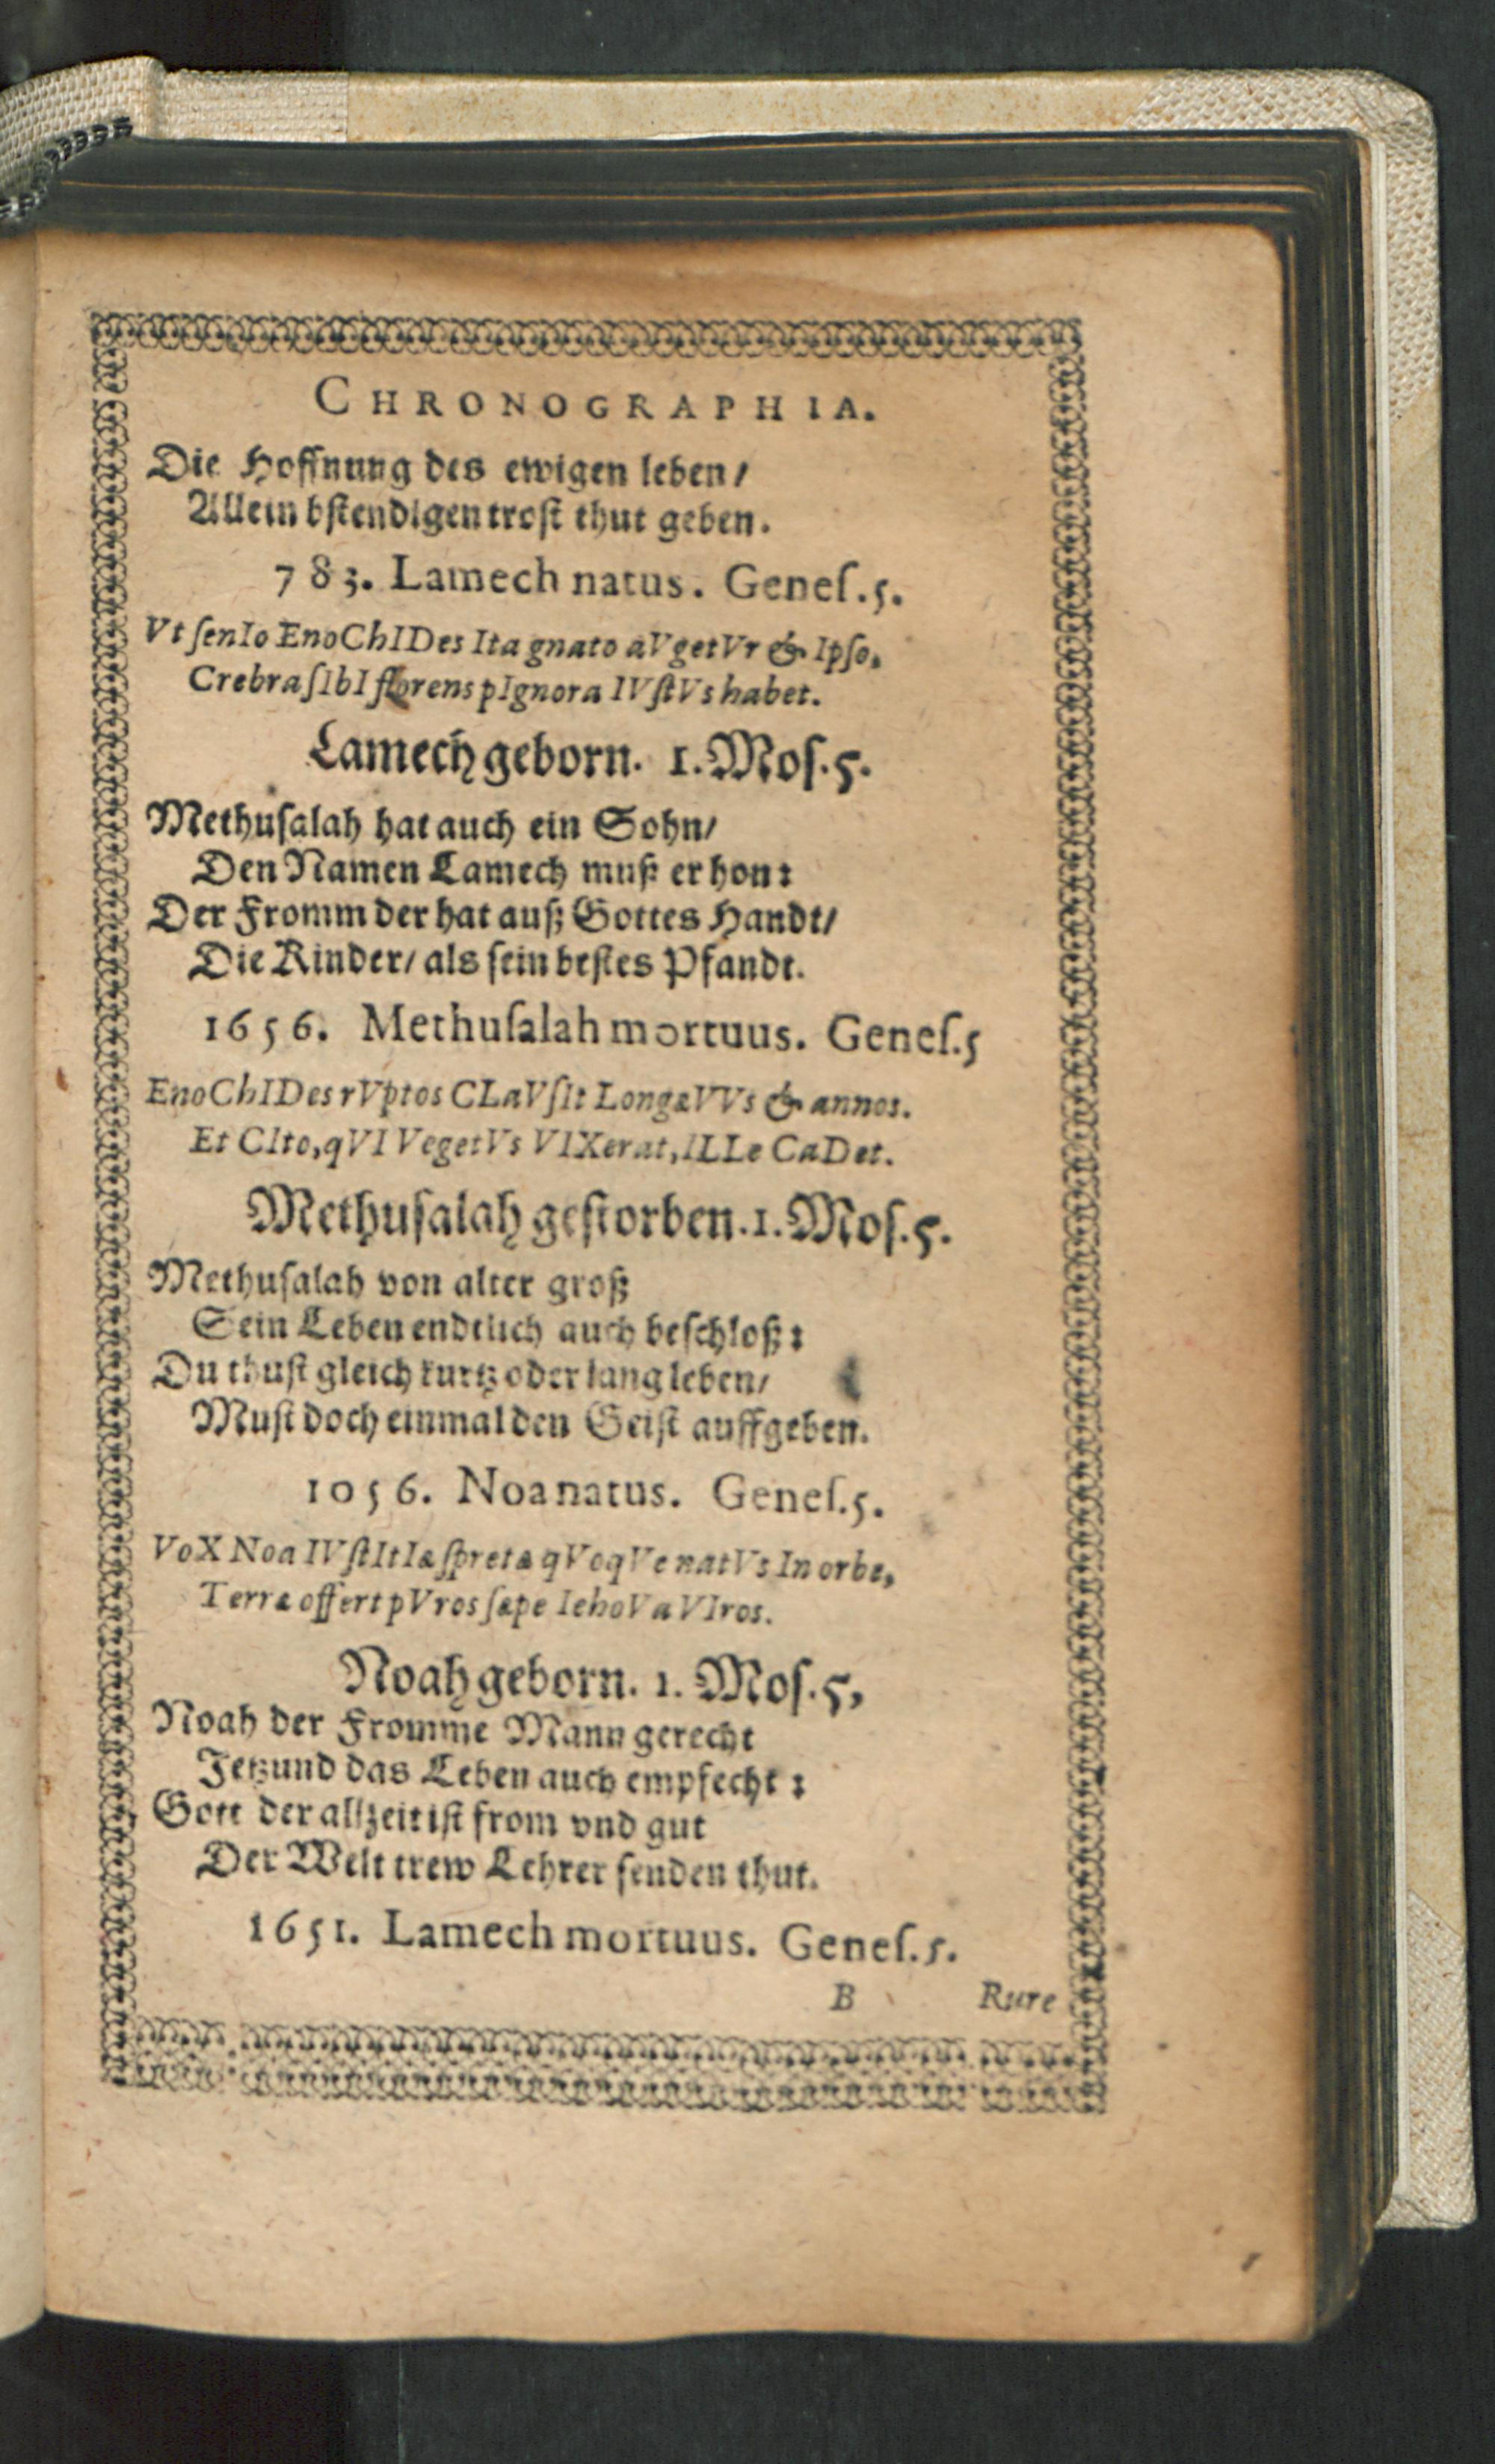 CHRONOGRAPHIA.
Die Hoffnung des ewigen leben/
Allein bſtendigen troſt thut geben.
783. Lamech natus. Geneſ. 5.
Vt ſenIo EnoChIDes Ita gnato aVgetVr & Ipſo,
Crebra ſIbI florens pIgnora IVſtVs habet.
Lamech geborn. 1. Moſ. 5.
Methuſalah hat auch ein Sohn/
Den Namen Lamech muß er hon:
Der Fromm der hat auß Gottes Handt/
Die Kinder/ als ſein beſtes Pfandt.
1656. Methuſalah mortuus. Geneſ. 5
EnoChIDes rVptos CLaVſIt LongæVVs & annos.
Et CIto, qVI VegetVs VIXerat, ILLe CaDet.
Methuſalah geſtorben. 1. Moſ. 5.
Methuſalah von alter groß
Sein Leben endtlich auch beſchloß:
Du thuſt gleich kurtz oder lang leben/
Muſt doch einmal den Geiſt auffgeben.
1056. Noa natus. Geneſ. 5.
VoX Noa IVſtItIæ ſpretæ qVoqVe natVs In orbe,
Terræ offert pVros ſæpe IehoVa VIros.
Noah geborn. 1. Moſ. 5,
Noah der Fromme Mann gerecht
Jetzund das Leben auch empfecht:
Gott der allzeit iſt from vnd gut
Der Welt trew Lehrer ſenden thut.
1651. Lamech mortuus. Geneſ. 5.
B Rure